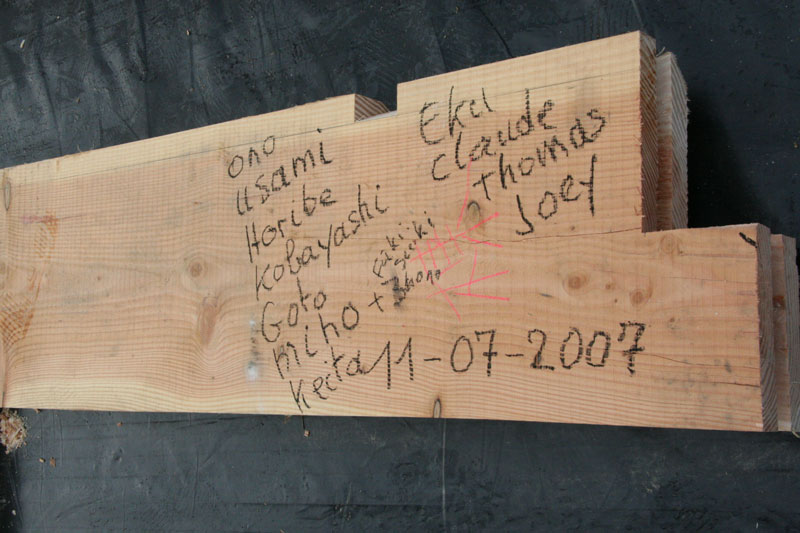 ono
usami
Horibe
Kobayashi
Goto
miho +
Keita
seiki
Shono
Eku
Claude
thomas
Joey
11-07-2007